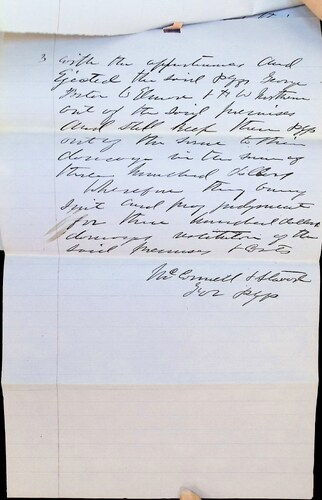 3 with the appurtenances and
Ejected the said Plffs George
Porter W Elmore & H W
out of the said premises
and still keep them Plffs
out of the same to their
damage in the sum of
three hundred Dollars
Wherefore they bring
Suit and pray judgment
for three hundred dollars
damages restitution of the
said premises & Costs
McConnell &
for Plffs